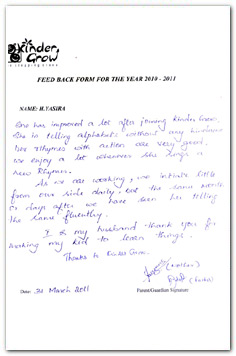 Kinder Grow
a stepping stone
FEED BACK FORM FOR THE YEAR 2010 - 2011
NAME: H.YASIRA
She has improved a lot after joining Kinder Grow.
She is telling alphabets without any hindrance
her rhymes with action are very good.
We enjoy a lot whenever she sings a
new Rhymes.
As we are working, we initiate little
from our side daily, but the same words
or days after we have seen her telling
the same fluently.
I & my husband thank you for
making my kid to learn things.
Thanks to Kinder Grow.
(mother)
Date: 31 March 2011
Parent/Guardian Signature